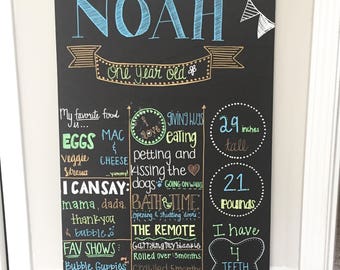 NOAH
one year old
My favorite food
is...
EGGS
MAC
&
CHEESE
veggie
...yummy!
I CAN SAY:
mama, dada,
thank you
& bubble
FAV SHOWS:
Bubble Guppies
I
love
giving hugs
eating
petting and
kissing the
dogs
GOING ON WALKS
BATH TIME
opening & shutting doors
THE REMOTE
Rolled over 3 months
29 inches
tall
21
POUNDS
I have
4
TEETH